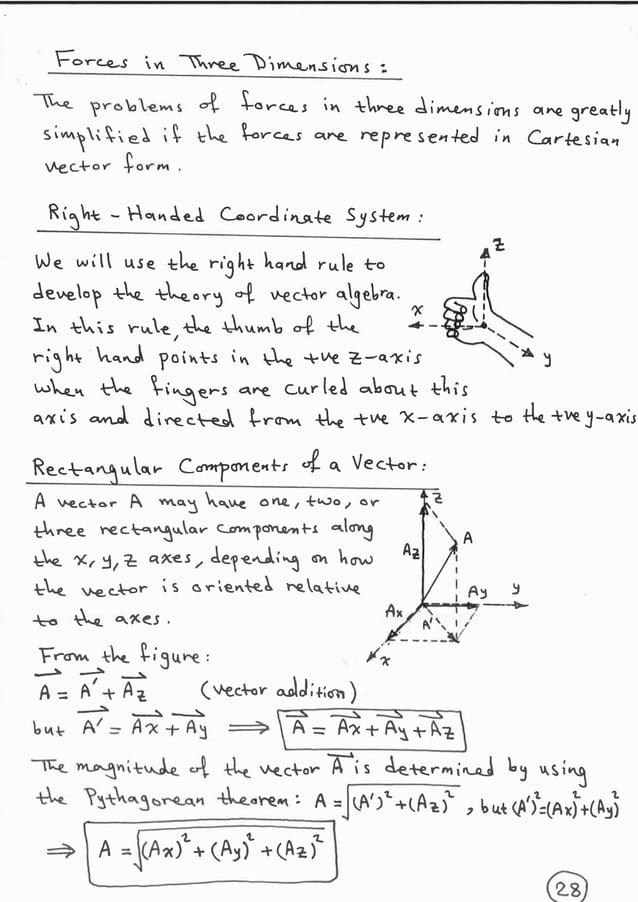 Forces in Three Dimensions:
The problems of forces in three dimensions are greatly
simplified if the forces are represented in Cartesian
vector form.
Right-Handed Coordinate System:
We will use the right hand rule to
develop the theory of vector algebra.
In this rule, the thumb of the
right hand points in the +ve z-axis
when the fingers are curled about this
axis and directed from the +ve x-axis to the +ve y-axis
z
x
y
Rectangular Components of a Vector:
A vector A may have one, two, or
three rectangular components along
the x, y, z axes, depending on how
the vector is oriented relative
to the axes.
z
A
Az
Ay
y
Ax
A'
x
From the figure:
A⃗ = A⃗' + A⃗z (vector addition)
but A⃗' = A⃗x + A⃗y ⟹ A⃗ = A⃗x + A⃗y + A⃗z
The magnitude of the vector A⃗ is determined by using
the Pythagorean theorem: A = √(A')² + (Az)², but (A')² = (Ax)² + (Ay)²
⟹ A = √(Ax)² + (Ay)² + (Az)²
28